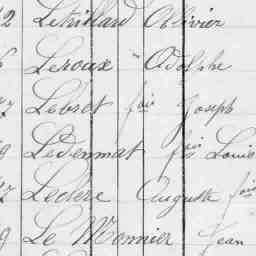 2 Letrillard Olivier
Leroux Adolphe
Lebret fois Joseph
9 Ledenmat fois Louis
Leclerc Auguste fois
9 Le Monnier Jean